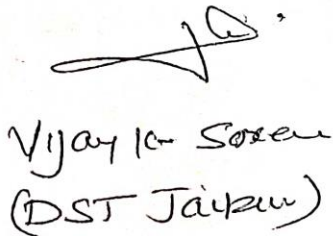 Vijay Kr Soren
(DST Jaipur)